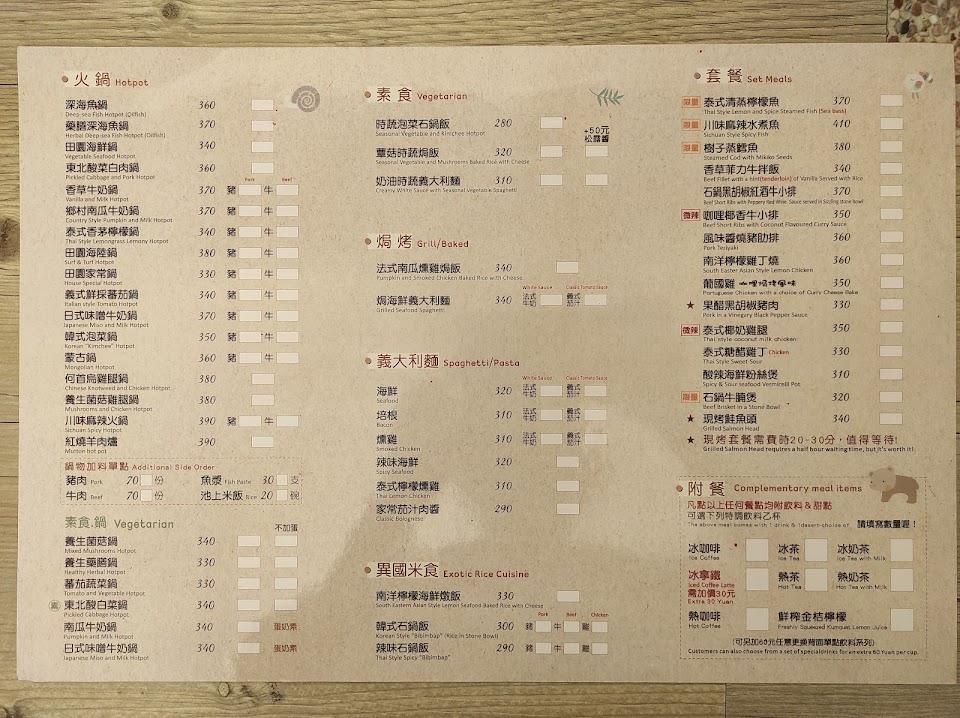 火鍋 Hotpot
深海魚鍋 360
Deep-sea Fish Hotpot (Oilfish)
藥膳深海魚鍋 370
Herbal Deep-sea Fish Hotpot (Oilfish)
田園海鮮鍋 340
Vegetable Seafood Hotpot
東北酸菜白肉鍋 360
Pickled Cabbage and Pork Hotpot
Pork Beef
香草牛奶鍋 370 豬 牛
Vanilla and Milk Hotpot
鄉村南瓜牛奶鍋 370 豬 牛
Country Style Pumpkin and Milk Hotpot
泰式香茅檸檬鍋 340 豬 牛
Thai Style Lemongrass Lemony Hotpot
田園海陸鍋 380 豬 牛
Surf & Turf Hotpot
田園家常鍋 330 豬 牛
House Special Hotpot
義式鮮採蕃茄鍋 340 豬 牛
Italian style Tomato Hotpot
日式味噌牛奶鍋 370 豬 牛
Japanese Miso and Milk Hotpot
韓式泡菜鍋 350 豬 牛
Korean "Kimchee" Hotpot
蒙古鍋 360 豬 牛
Mongolian Hotpot
何首烏雞腿鍋 380
Chinese Knotweed and Chicken Hotpot
養生菌菇雞腿鍋 380
Mushrooms and Chicken Hotpot
川味麻辣火鍋 390 豬 牛
Sichuan Spicy Hotpot
紅燒羊肉爐 390
Mutton hot pot
鍋物加料單點 Additional Side Order
豬肉 Pork 70 份 魚漿 Fish Paste 30 支
牛肉 Beef 70 份 池上米飯 Rice 20 碗
素食.鍋 Vegetarian
不加蛋
養生菌菇鍋 340
Mixed Mushrooms Hotpot
養生藥膳鍋 330
Healthy Herbal Hotpot
蕃茄蔬菜鍋 330
Tomato and Vegetable Hotpot
素 東北酸白菜鍋 340
Pickled Cabbage Hotpot
南瓜牛奶鍋 340 蛋奶素
Pumpkin and Milk Hotpot
日式味噌牛奶鍋 340 蛋奶素
Japanese Miso and Milk Hotpot
素食 Vegetarian
時蔬泡菜石鍋飯 280
Seasonal Vegetable and Kimchee Hotpot
+50元
松露醬
蕈菇時蔬焗飯 320
Seasonal Vegetable and Mushrooms Baked Rice with Cheese
奶油時蔬義大利麵 310
Creamy White Sauce with Seasonal Vegetable Spaghetti
焗烤 Grill/Baked
法式南瓜燻雞焗飯 340
Pumpkin and Smocked Chicken Baked Rice with Cheese
White Sauce Classic Tomato Sauce
焗海鮮義大利麵 340 法式牛奶 義式茄汁
Grilled Seafood Spaghetti
義大利麵 Spaghetti/Pasta
White Sauce Classic Tomato Sauce
海鮮 320 法式牛奶 義式茄汁
Seafood
培根 310 法式牛奶 義式茄汁
Bacon
燻雞 310 法式牛奶 義式茄汁
Smoked Chicken
辣味海鮮 320
Spicy Seafood
泰式檸檬燻雞 310
Thai Lemon Chicken
家常茄汁肉醬 290
Classic Bolognese
異國米食 Exotic Rice Cuisine
南洋檸檬海鮮燉飯 330
South Eastern Asian Style Lemon Seafood Baked Rice with Cheese
Pork Beef Chicken
韓式石鍋飯 300 豬 牛 雞
Korean Style "Bibimbap" (Rice in Stone Bowl)
辣味石鍋飯 290 豬 牛 雞
Thai Style Spicy "Bibimbap"
套餐 Set Meals
限量 泰式清蒸檸檬魚 370
Thai Style Lemon and Spice Steamed Fish (Sea bass)
限量 川味麻辣水煮魚 410
Sichuan Style Spicy Fish
限量 樹子蒸鱈魚 380
Steamed Cod with Mikiko Seeds
香草菲力牛拌飯 340
Beef Fillet with a hint(tenderloin) of Vanilla Served with Rice
石鍋黑胡椒紅酒牛小排 370
Beef Short Ribs with Peppery Red Wine. Sauce served in Sizzling Stone Bowl
微辣 咖哩椰香牛小排 350
Beef Short Ribs with Coconut Flavoured Curry Sauce
風味醬燒豬肋排 360
Pork Teriyaki
南洋檸檬雞丁燒 360
South Easter Asian Style Lemon Chicken
葡國雞 咖哩焗烤風味 350
Portuguese Chicken with a choice of Curry Cheese Bake
★ 果醋黑胡椒豬肉 330
Pork in a Vinegary Black Pepper Sauce
微辣 泰式椰奶雞腿 350
Thai style coconut milk chicken
泰式糖醋雞丁 Chicken 330
Thai Style Sweet Sour
酸辣海鮮粉絲煲 310
Spicy & Sour seafood Vermicelli Pot
限量 石鍋牛腩煲 320
Beef Brisket in a Stone Bowl
★ 現烤鮭魚頭 340
Grilled Salmon Head
★ 現烤套餐需費時20-30分，值得等待!
Grilled Salmon Head requires a half hour waiting time, but it's worth it!
附餐 Complementary meal items
凡點以上任何餐點均附飲料&甜點
可選下列特調飲料乙杯
The above meal comes with 1 drink & 1dessert-choice of 請填寫數量喔！
冰咖啡 冰茶 冰奶茶
Ice Coffee Ice Tea Ice Tea with Milk
冰拿鐵 熱茶 熱奶茶
Iced Coffee Latte Hot Tea Hot Tea with Milk
需加價30元
Extra 30 Yuan
熱咖啡 鮮榨金桔檸檬
Hot Coffee Freshly Squeezed Kumquat Lemon Juice
(可另加60元任意更換背面單點飲料系列)
Customers can also choose from a set of specialdrinks for an extra 60 Yuan per cup.